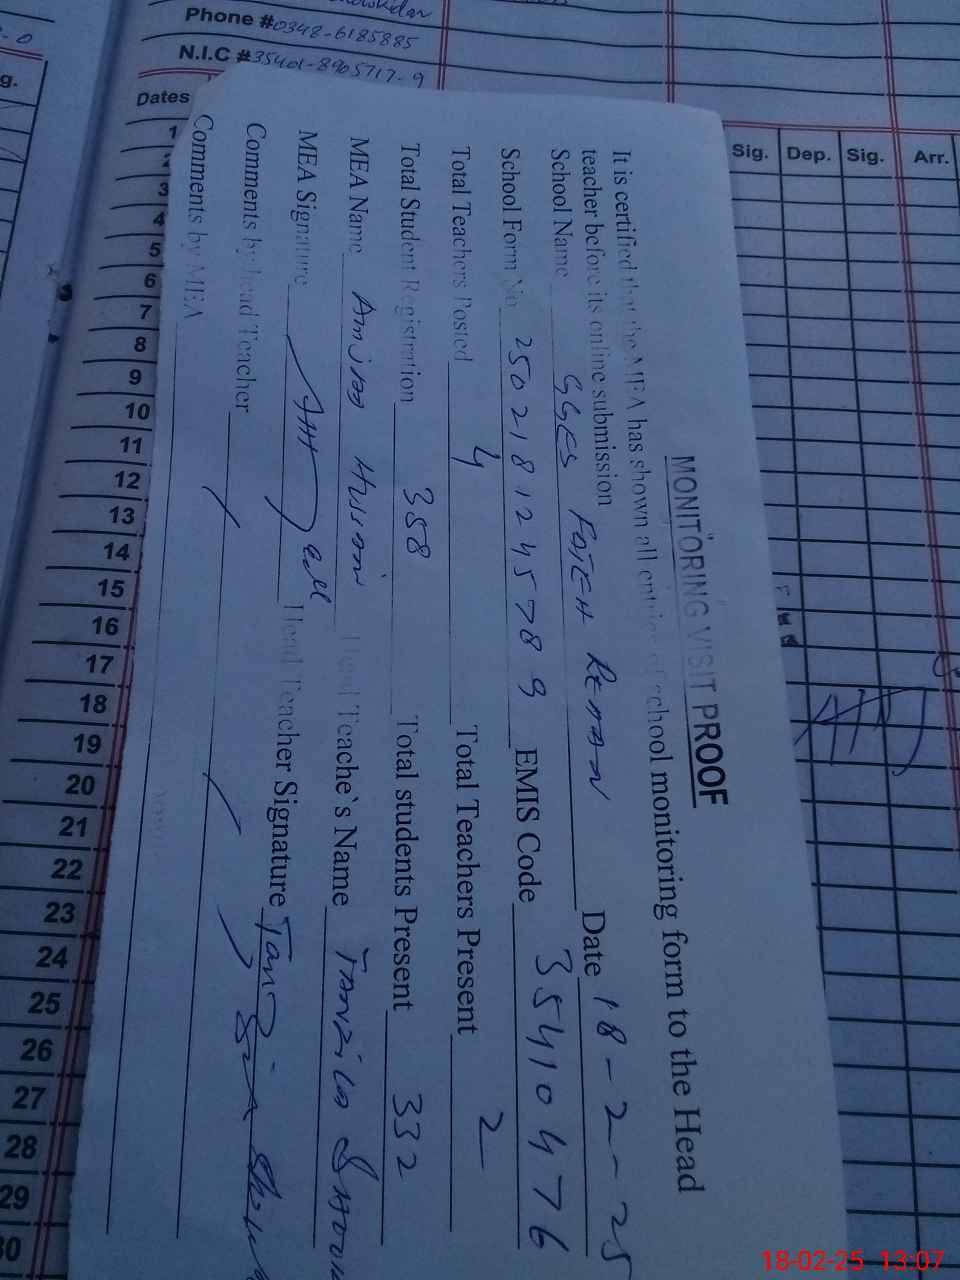 Phone #0348-6185885
N.I.C #35401-8965717-9
Dates
g.
Sig. Dep. Sig. Arr.
1
2
3
4
5
6
7
8
9
10
11
12
13
14
15
16
17
18
19
20
21
22
23
24
25
26
27
28
29
30
MONITORING VISIT PROOF
It is certified that the MEA has shown all entries of school monitoring form to the Head
teacher before its online submission
School Name GGES FATEH Date 18-2-25
School Form No 2502181245789 EMIS Code 35410476
Total Teachers Posted 4 Total Teachers Present 2
Total Student Registration 358 Total students Present 332
MEA Name Head Teache`s Name Tanzila
MEA Signature Head Teacher Signature
Comments by head Teacher
Comments by MEA
18-02-25 13:07